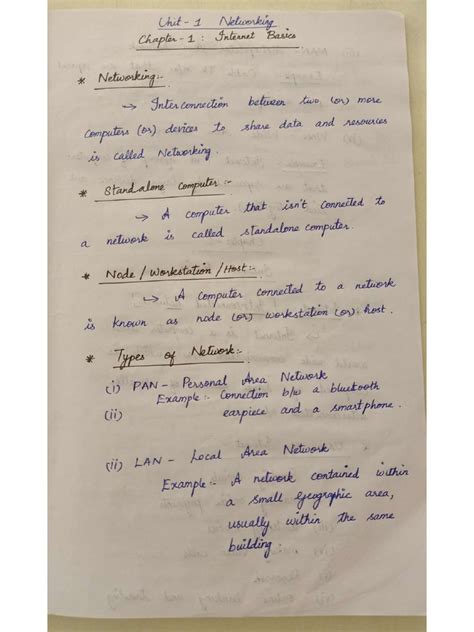 Unit - 1 Networking
Chapter - 1 : Internet Basics
* Networking:-
→ Interconnection between two (or) more
computers (or) devices to share data and resources
is called Networking.
* Standalone computer :-
→ A computer that isn't connected to
a network is called standalone computer.
* Node / Workstation / Host:-
→ A computer connected to a network
is known as node (or) workstation (or) host.
* Types of Network:-
(i) PAN - Personal Area Network
Example:- Connection b/w a bluetooth
(ii) earpiece and a smartphone.
(ii) LAN - Local Area Network
Example:- A network contained within
a small geographic area,
usually within the same
building.